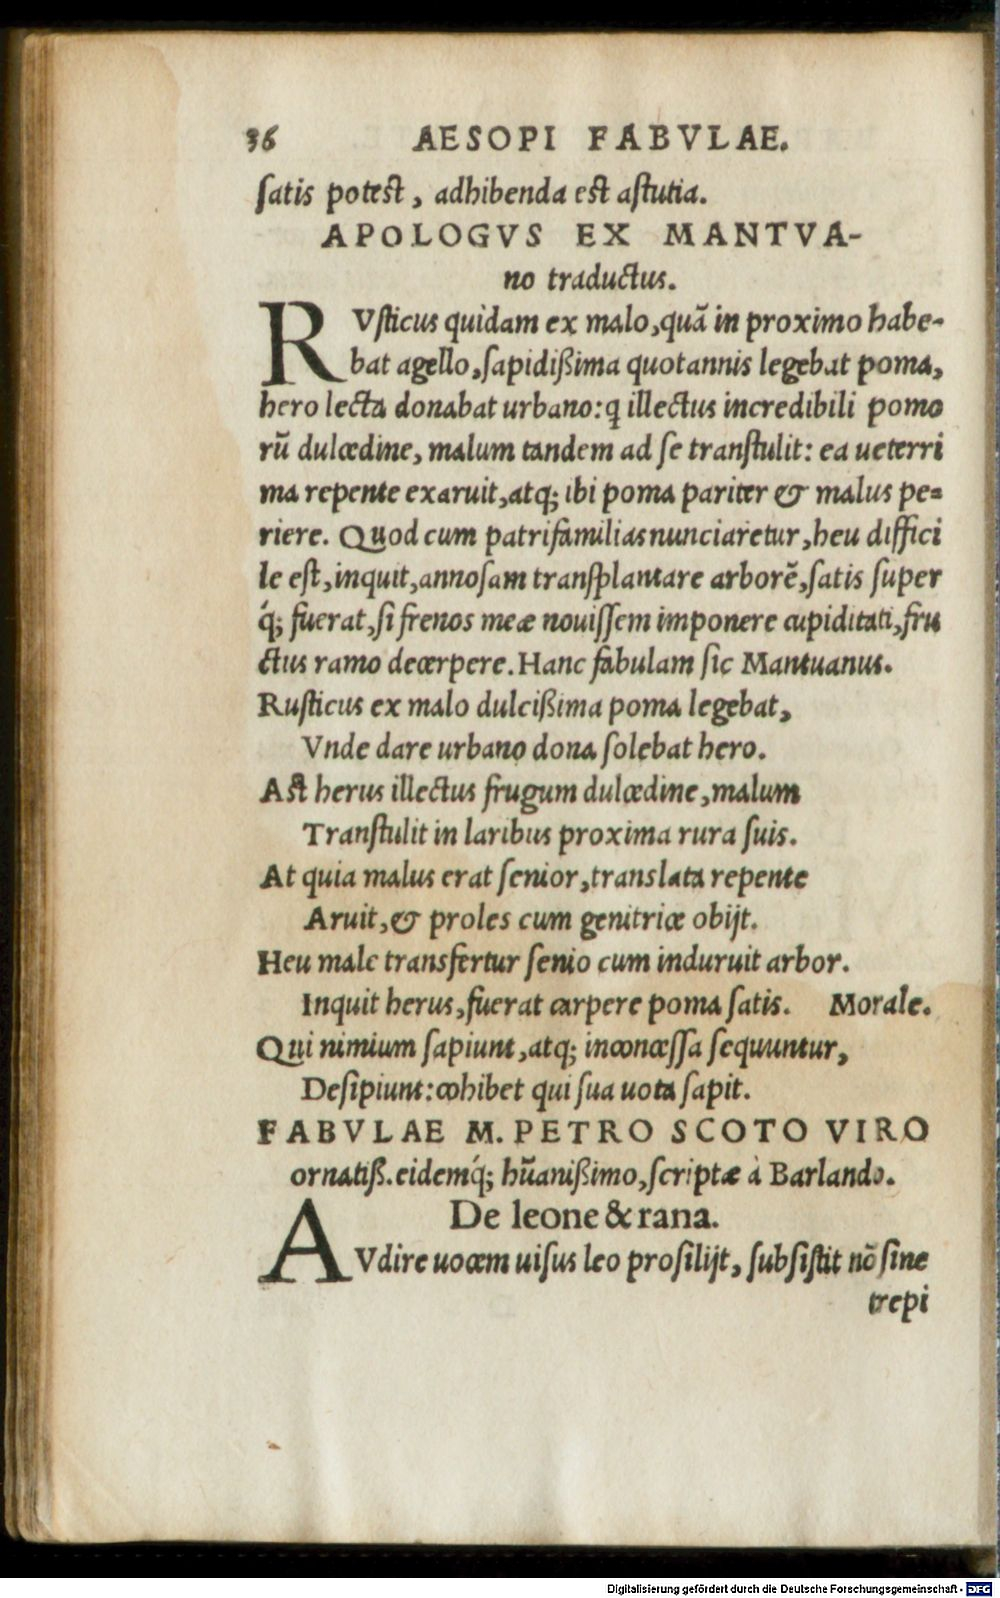 36 AESOPI FABVLAE.
ſatis poteſt, adhibenda eſt aſtutia.
APOLOGVS EX MANTVA-
no traductus.
RVſticus quidam ex malo, quã in proximo habe-
bat agello, ſapidißima quotannis legebat poma,
hero lecta donabat urbano: q̃ illectus incredibili pomo
rũ dulcedine, malum tandem ad ſe tranſtulit: ea ueterri
ma repente exaruit, atq; ibi poma pariter & malus pe-
riere. Quod cum patrifamilias nunciaretur, heu diffici
le eſt, inquit, annoſam tranſplantare arborẽ, ſatis ſuper
q́; fuerat, ſi frenos meæ nouiſſem imponere cupiditati, fru
ctus ramo decerpere. Hanc fabulam ſic Mantuanus.
Ruſticus ex malo dulcißima poma legebat,
Vnde dare urbano dona ſolebat hero.
Aſt herus illectus frugum dulcedine, malum
Tranſtulit in laribus proxima rura ſuis.
At quia malus erat ſenior, translata repente
Aruit, & proles cum genitrice obijt.
Heu male transfertur ſenio cum induruit arbor.
Inquit herus, fuerat carpere poma ſatis. Morale.
Qui nimium ſapiunt, atq; inconceſſa ſequuntur,
Deſipiunt: cohibet qui ſua uota ſapit.
FABVLAE M. PETRO SCOTO VIRO
ornatiß. eidemq́; hũanißimo, ſcriptæ à Barlando.
De leone & rana.
AVdire uocem uiſus leo proſilijt, ſubſiſtit nõ ſine
trepi
Digitalisierung gefördert durch die Deutsche Forschungsgemeinschaft - DFG